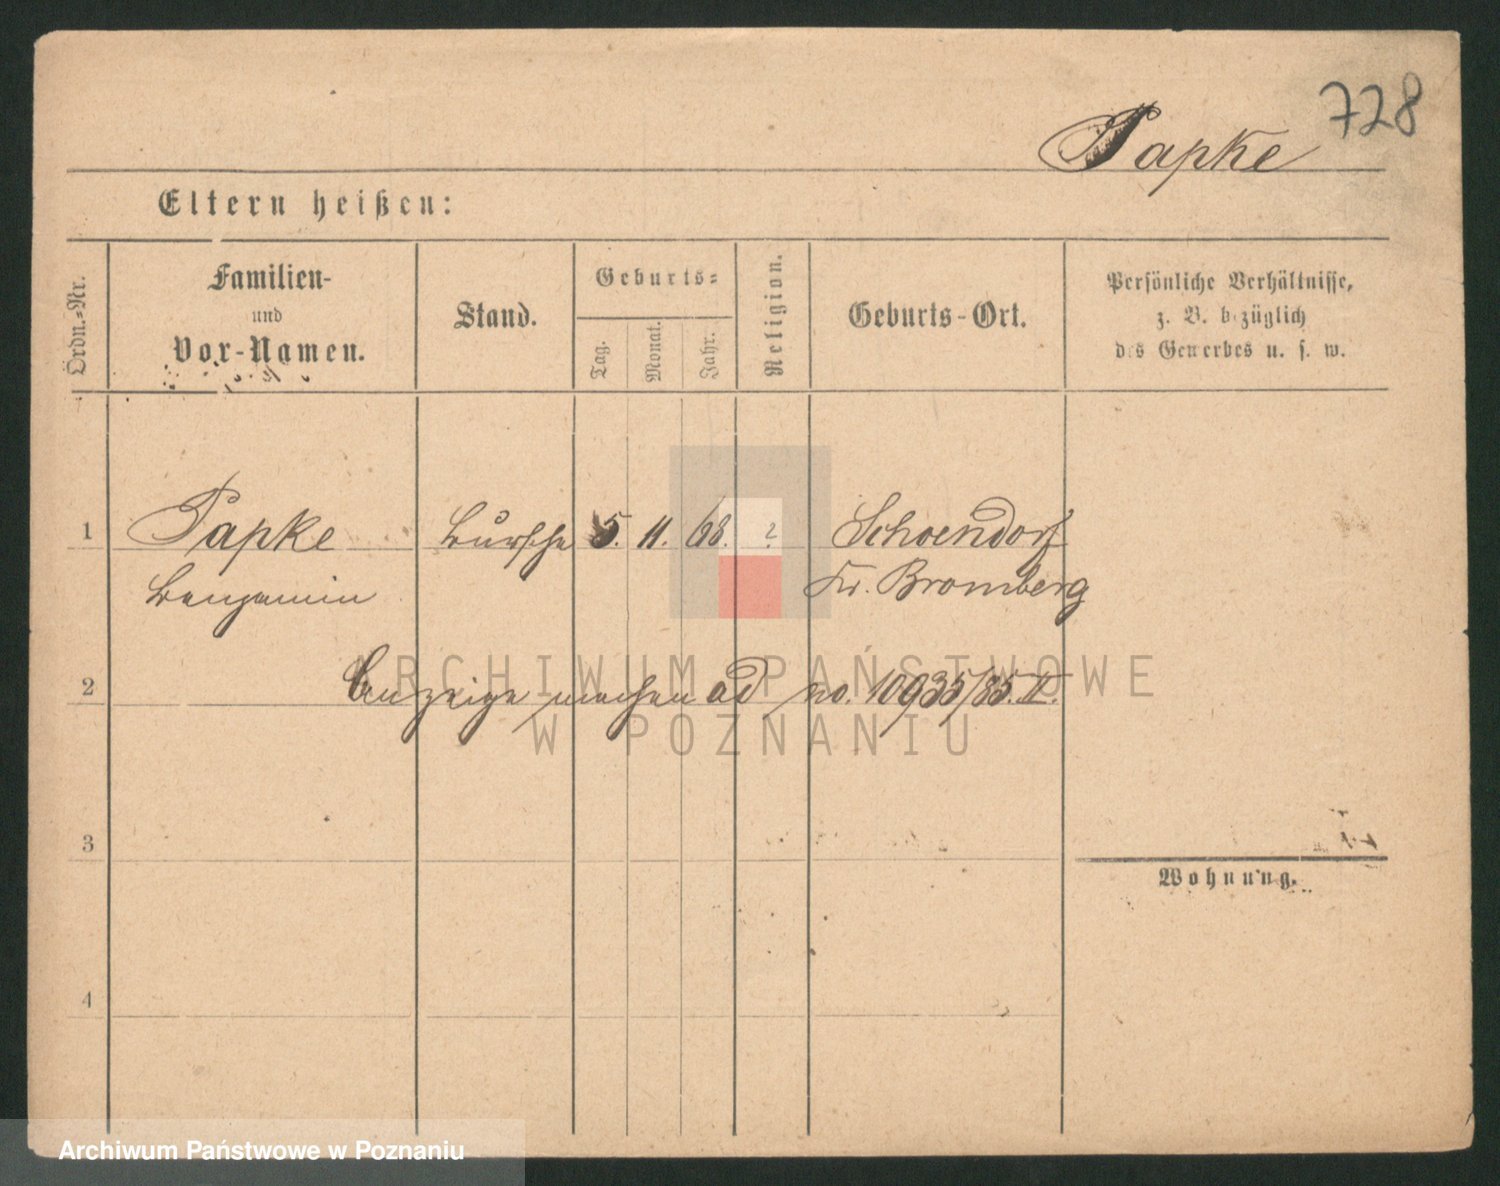 728
Papke
Eltern heißen:
Ordn.-Nr.
Familien-
und
Vor-Namen.
Stand.
Geburts-
Tag.
Monat.
Jahr.
Religion.
Geburts-Ort.
Persönliche Verhältnisse,
z. B. bezüglich
des Gewerbes u. s. w.
1 Papke Bursche 5. 11. 68. ? Schoendorf
Benjamin Kr. Bromberg
2 Anzeige machen ad no. 10935/85. II.
ARCHIWUM PAŃSTWOWE
W POZNANIU
3
Wohnung.
4
Archiwum Państwowe w Poznaniu